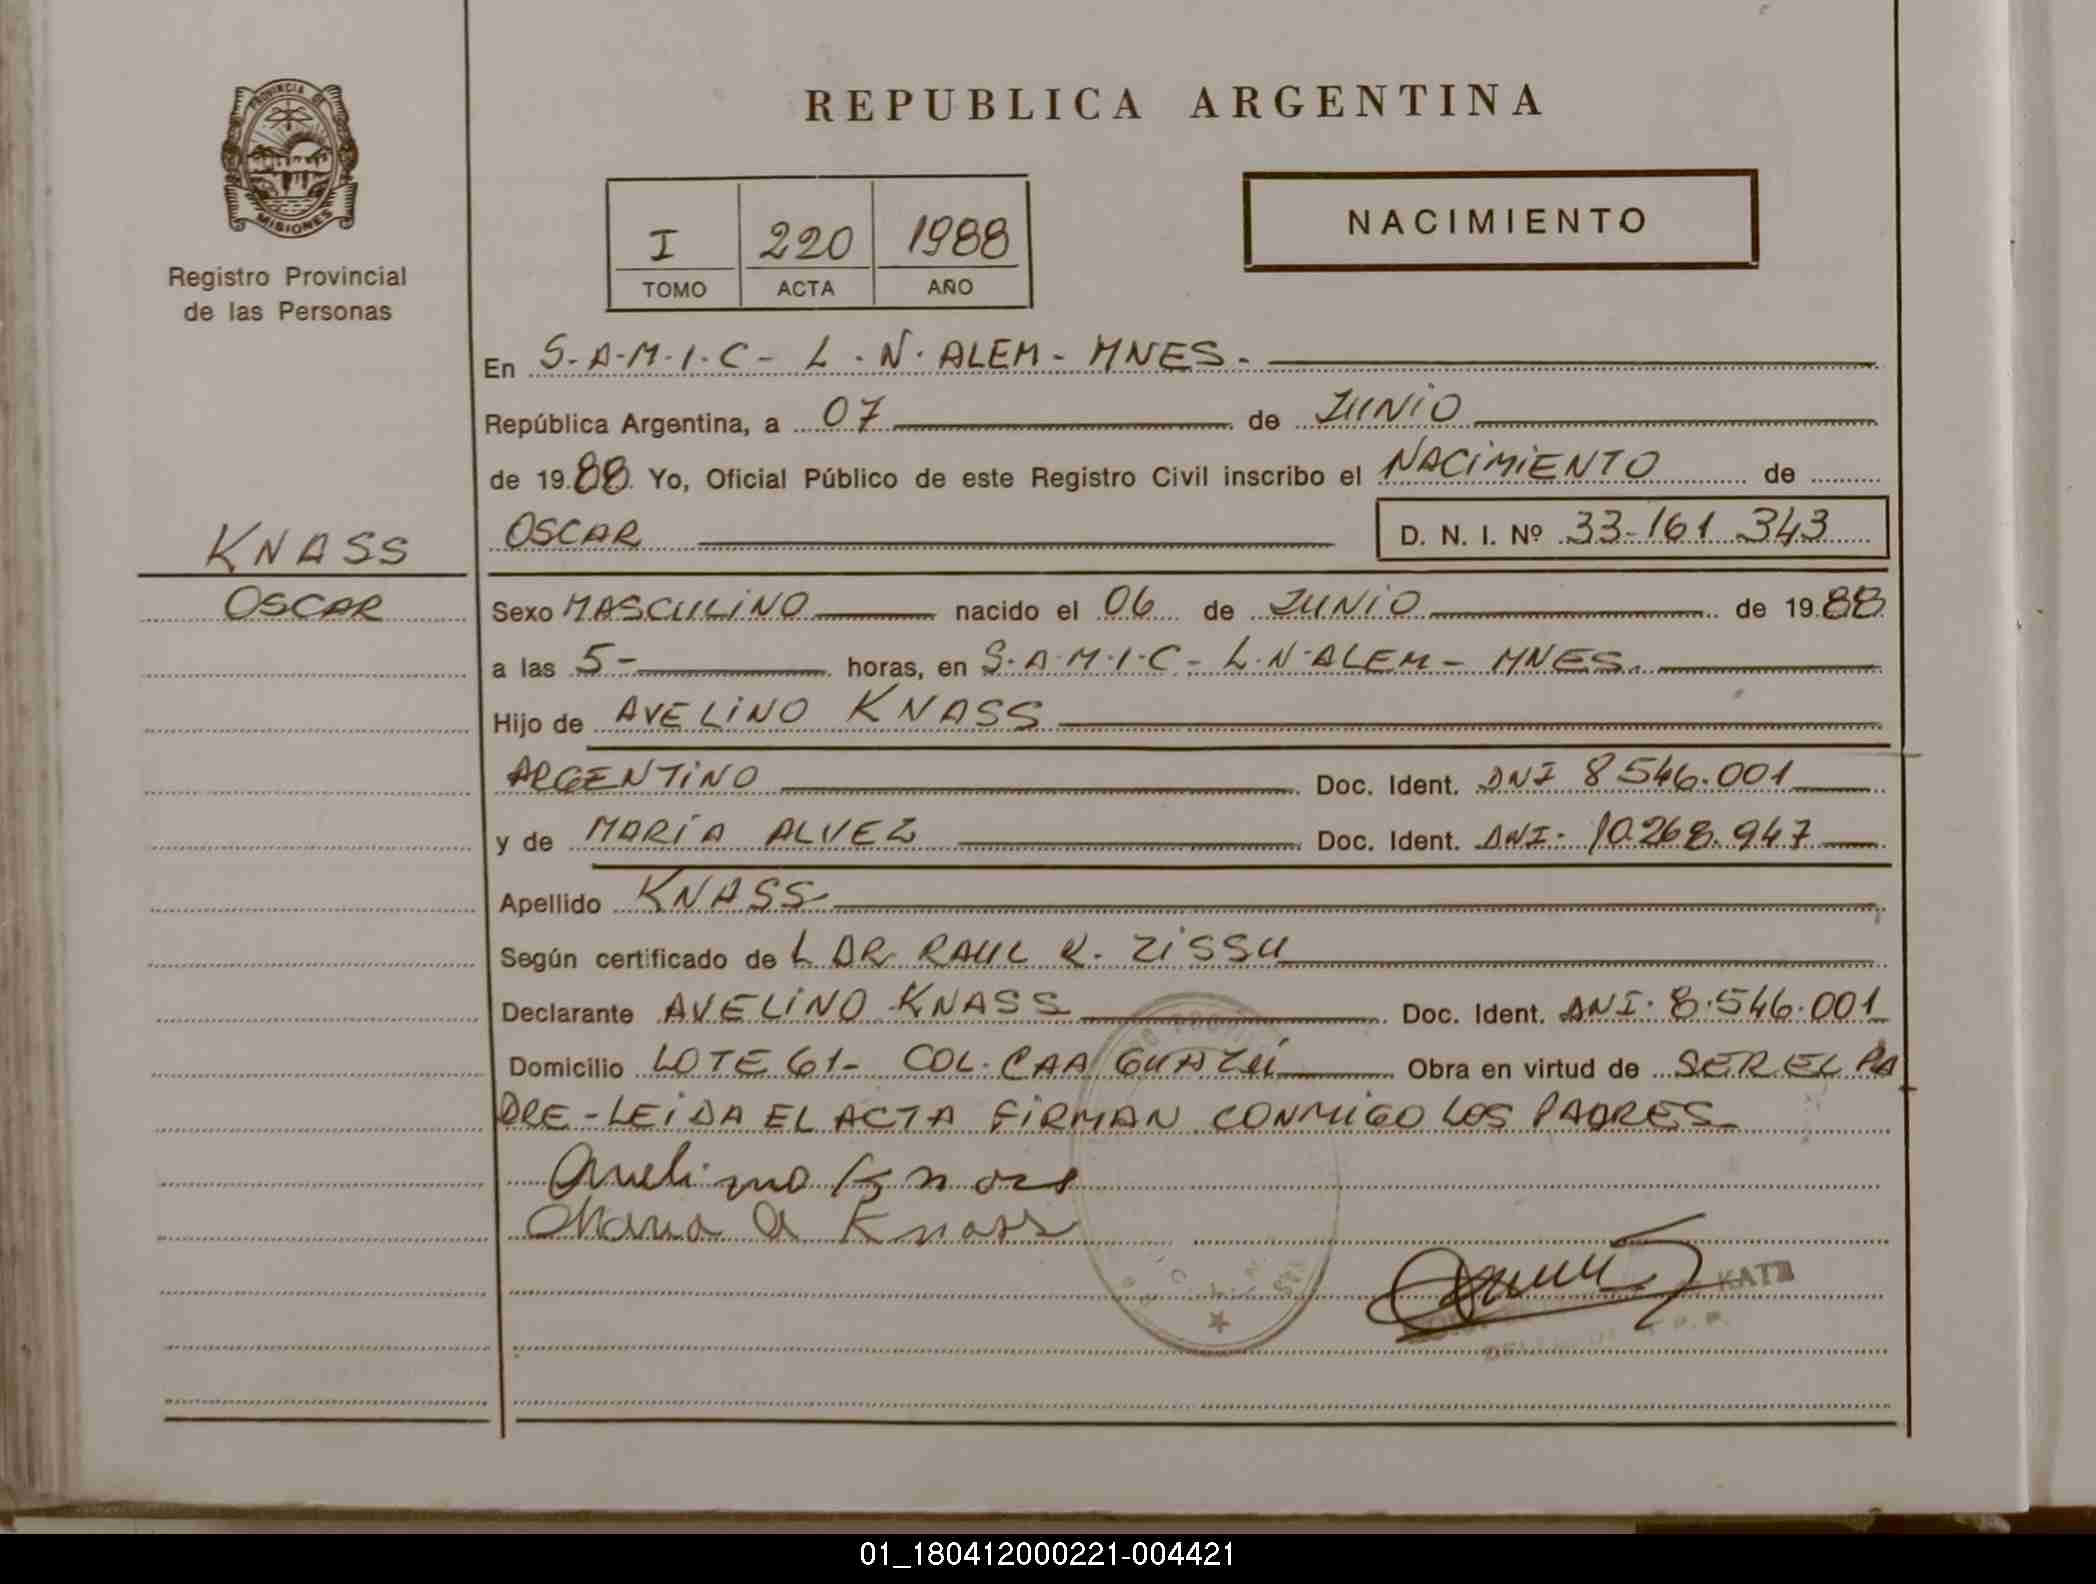 PROVINCIA DE
MISIONES
Registro Provincial
de las Personas
REPUBLICA ARGENTINA
I 220 1988
TOMO ACTA AÑO
NACIMIENTO
En S-A-M-I-C- L.N. ALEM- MNES.-
República Argentina, a 07 de JUNIO
de 1988. Yo, Oficial Público de este Registro Civil inscribo el NACIMIENTO de
KNASS
OSCAR
OSCAR D. N. I. Nº 33-161.343
Sexo MASCULINO nacido el 06 de JUNIO de 1988
a las 5- horas, en S-A-M-I-C- L-N-ALEM- MNES.
Hijo de AVELINO KNASS
ARGENTINO Doc. Ident. DNI 8546.001
y de MARÍA ALVEZ Doc. Ident. DNI- 10.268.947
Apellido KNASS
Según certificado de L DR. RAUL R. ZISSU
Declarante AVELINO KNASS Doc. Ident. DNI. 8.546.001
Domicilio LOTE 61- COL. CAA GUAZÚ Obra en virtud de SER EL PA
DRE-LEIDA EL ACTA FIRMAN CONMIGO LOS PADRES
Avelino Knass
Maria A Knass
01_180412000221-004421